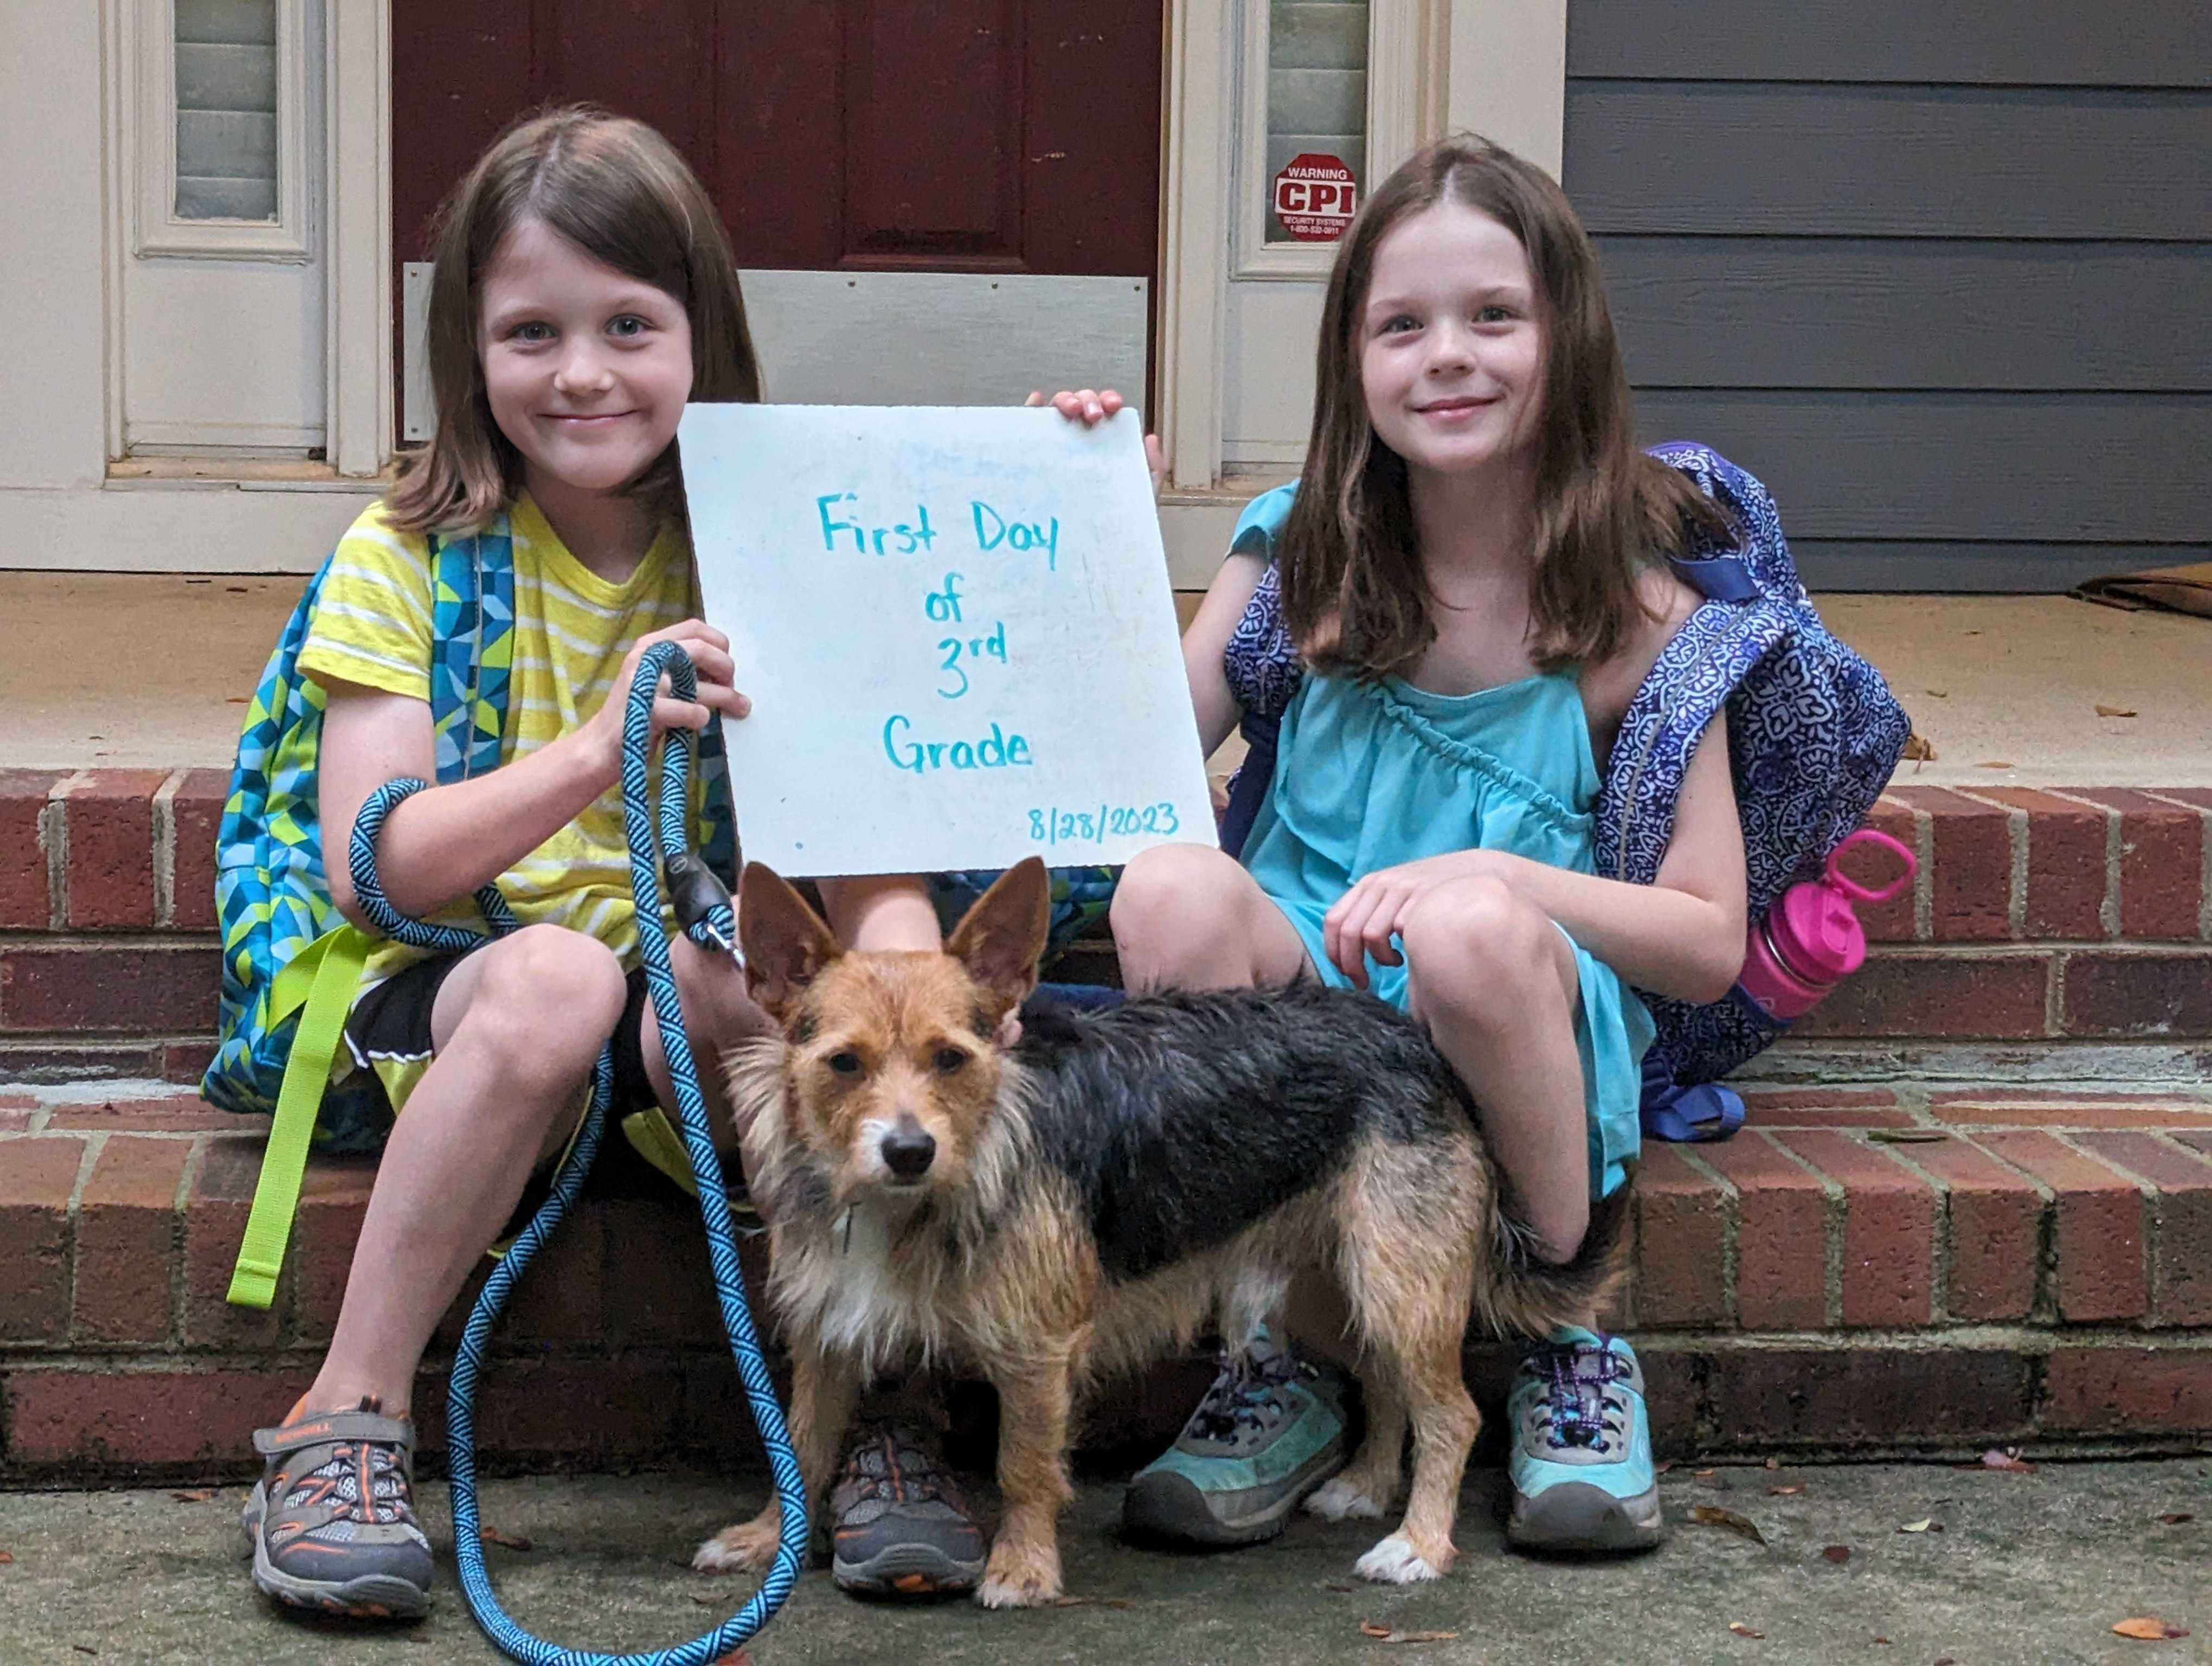 WARNING
CPI
SECURITY SYSTEMS
1-800-532-0911
First Day
of
3rd
Grade
8/28/2023
MERRELL